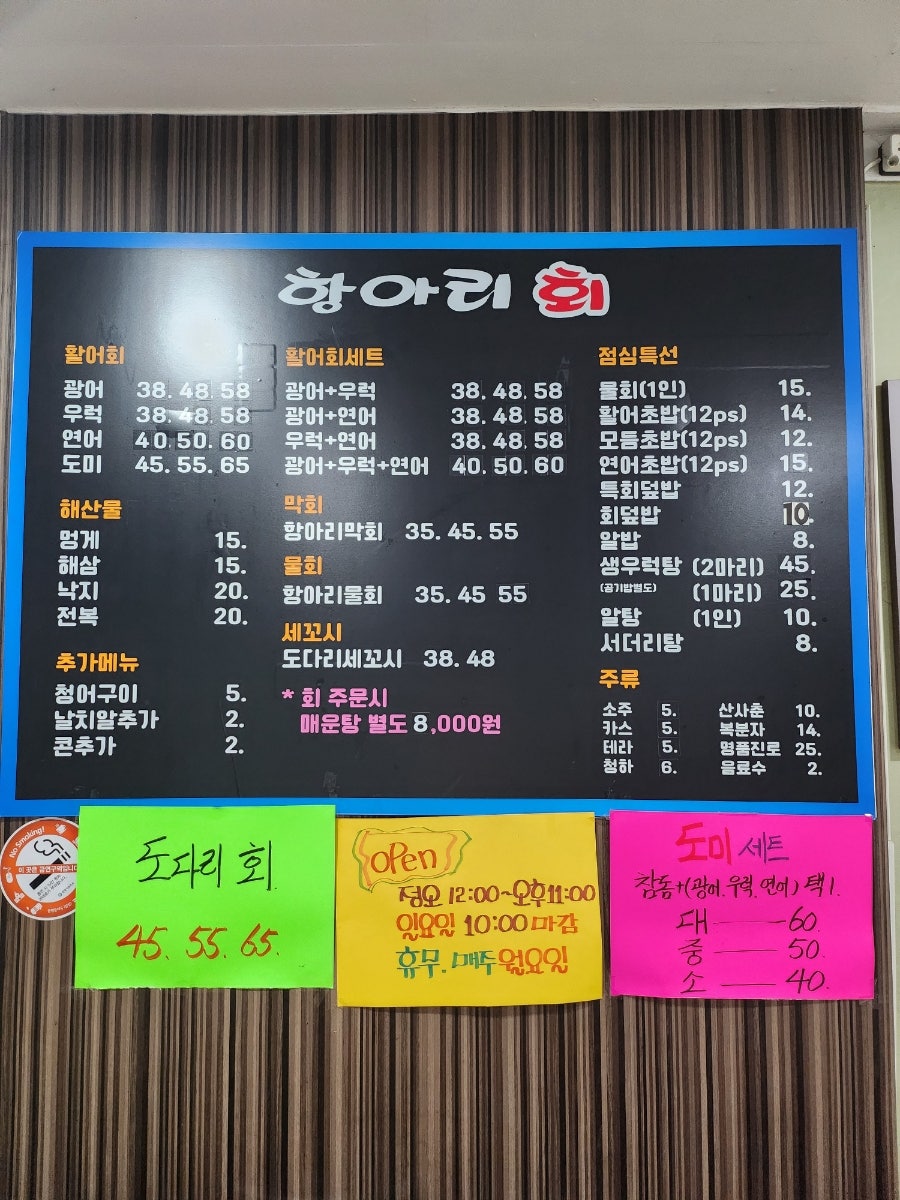 항아리 회
활어회
광어 38. 48. 58
우럭 38. 48. 58
연어 40. 50. 60
도미 45. 55. 65
해산물
멍게 15.
해삼 15.
낙지 20.
전복 20.
추가메뉴
청어구이 5.
날치알추가 2.
콘추가 2.
활어회세트
광어+우럭 38. 48. 58
광어+연어 38. 48. 58
우럭+연어 38. 48. 58
광어+우럭+연어 40. 50. 60
막회
항아리막회 35. 45. 55
물회
항아리물회 35. 45 55
세꼬시
도다리세꼬시 38. 48
* 회 주문시
매운탕 별도 8,000원
점심특선
물회(1인) 15.
활어초밥(12ps) 14.
모듬초밥(12ps) 12.
연어초밥(12ps) 15.
특회덮밥 12.
회덮밥 10.
알밥 8.
생우럭탕 (2마리) 45.
(공기밥별도) (1마리) 25.
알탕 (1인) 10.
서더리탕 8.
주류
소주 5. 산사춘 10.
카스 5. 복분자 14.
테라 5. 명품진로 25.
청하 6. 음료수 2.
No Smoking!
이 곳은 금연구역입니다
도다리 회
45. 55. 65.
open
정오 12:00~오후11:00
일요일 10:00 마감
휴무. 매주 월요일
도미 세트
참돔+(광어.우럭.연어) 택1.
대 — 60.
중 — 50.
소 — 40.